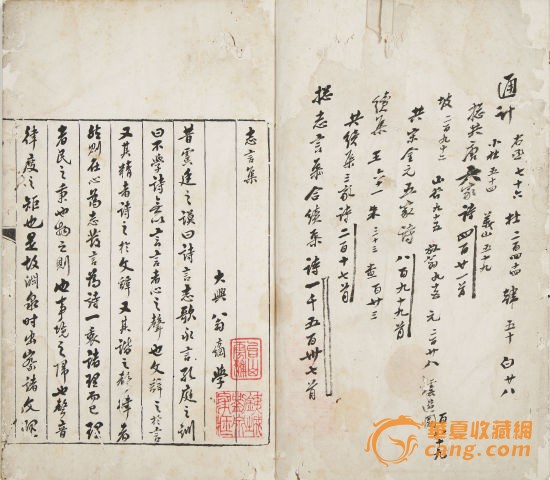 通計 右丞七十六 杜二百四十 韓五十 白廿八
小杜五十四 義山五十九
總共唐六家詩四百廿首
坡二百九十二 山谷九十五 放翁九十五 元二百廿八 道園百十九
共宋金元五家詩八百九十九首
續集 王六十一 朱三十三 查百廿三
共續集三家詩二百十七首
總志言集合續集詩一千五百卅七首
志言集
大興翁方綱學
昔虞廷之謨曰詩言志歌永言孔庭之訓
曰不學詩無以言言者心之聲也文辭之於言
又其精者詩之於文辭又其諧之聲律者
然則在心為志發言為詩一衷諸理而已理
者民之秉也物之則也事境之歸也聲音
律度之矩也是故淵泉時出察諸文理
华夏收藏网
cang.com